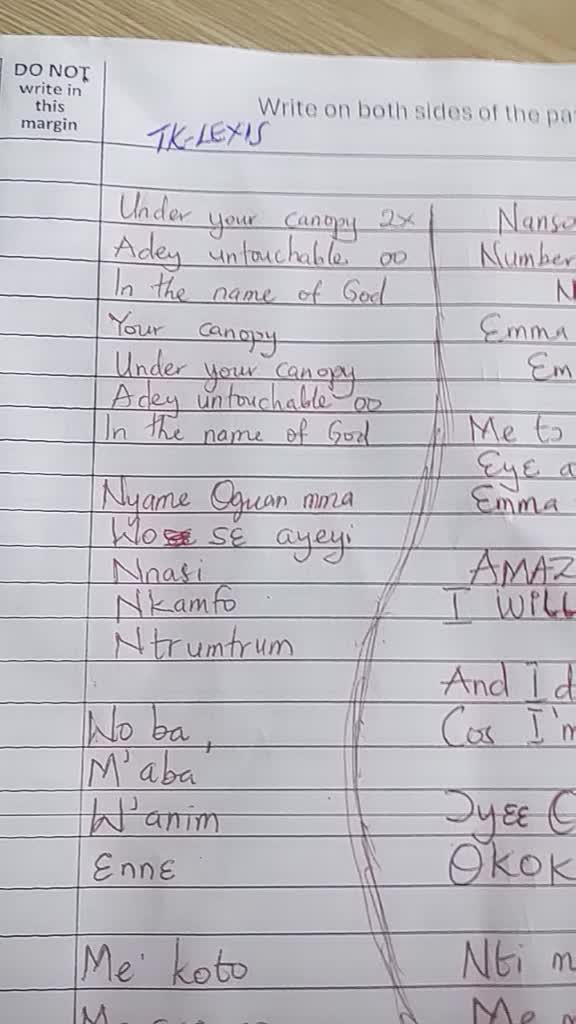 DO NOT
write in
this
margin
Write on both sides of the
TK-LEXIS
Under your canopy 2x
Adey untouchable oo
In the name of God
Your canopy
Under your canopy
Adey untouchable oo
In the name of God
Nyame Oguan mma
Wo sɛ ayeyi
Nnasi
Nkamfo
Ntrumtrum
No ba,
M'aba
W'anim
Ɛnnɛ
Me' koto
Number
Emma
Me to
Eyɛ
Emma
I WILL
And I
Cos I'm
Ɔyɛɛ
Nti
Me